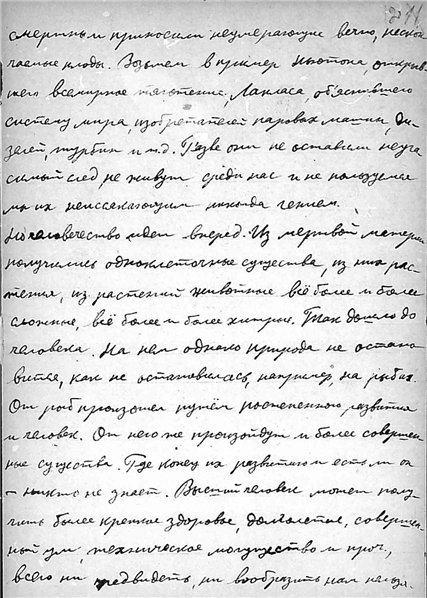 211
смертным приносили неумирающие вечно, нескон
чаемые плоды. Возьмем в пример Ньютона, открыв
шего всемирное тяготение, Лапласа, объяснившего
систему мира, изобретателей паровых машин, ди
зелей, турбин и т.д. Разве они не оставили неуга
симый след, не живут среди нас и не пользуемся
мы их неиссякающим никогда гением.
Но человечество идет вперед. Из мертвой материи
получились одноклеточные существа, из них рас
тения, из растений животные всё более и более
сложные, всё более и более хитрые. Так дошло до
человека. На нем однако природа не остано
вится, как не остановилась, например, на рыбах.
От рыб произошел путём постепенного развития
и человек. От него же произойдут и более совершен
ные существа. Где конец их развитию и есть ли он
– никто не знает. Высший человек может полу
чить более крепкое здоровье, долголетие, совершен
ный ум, техническое могущество и проч.,
всего ни предвидеть, ни вообразить нам нельзя.